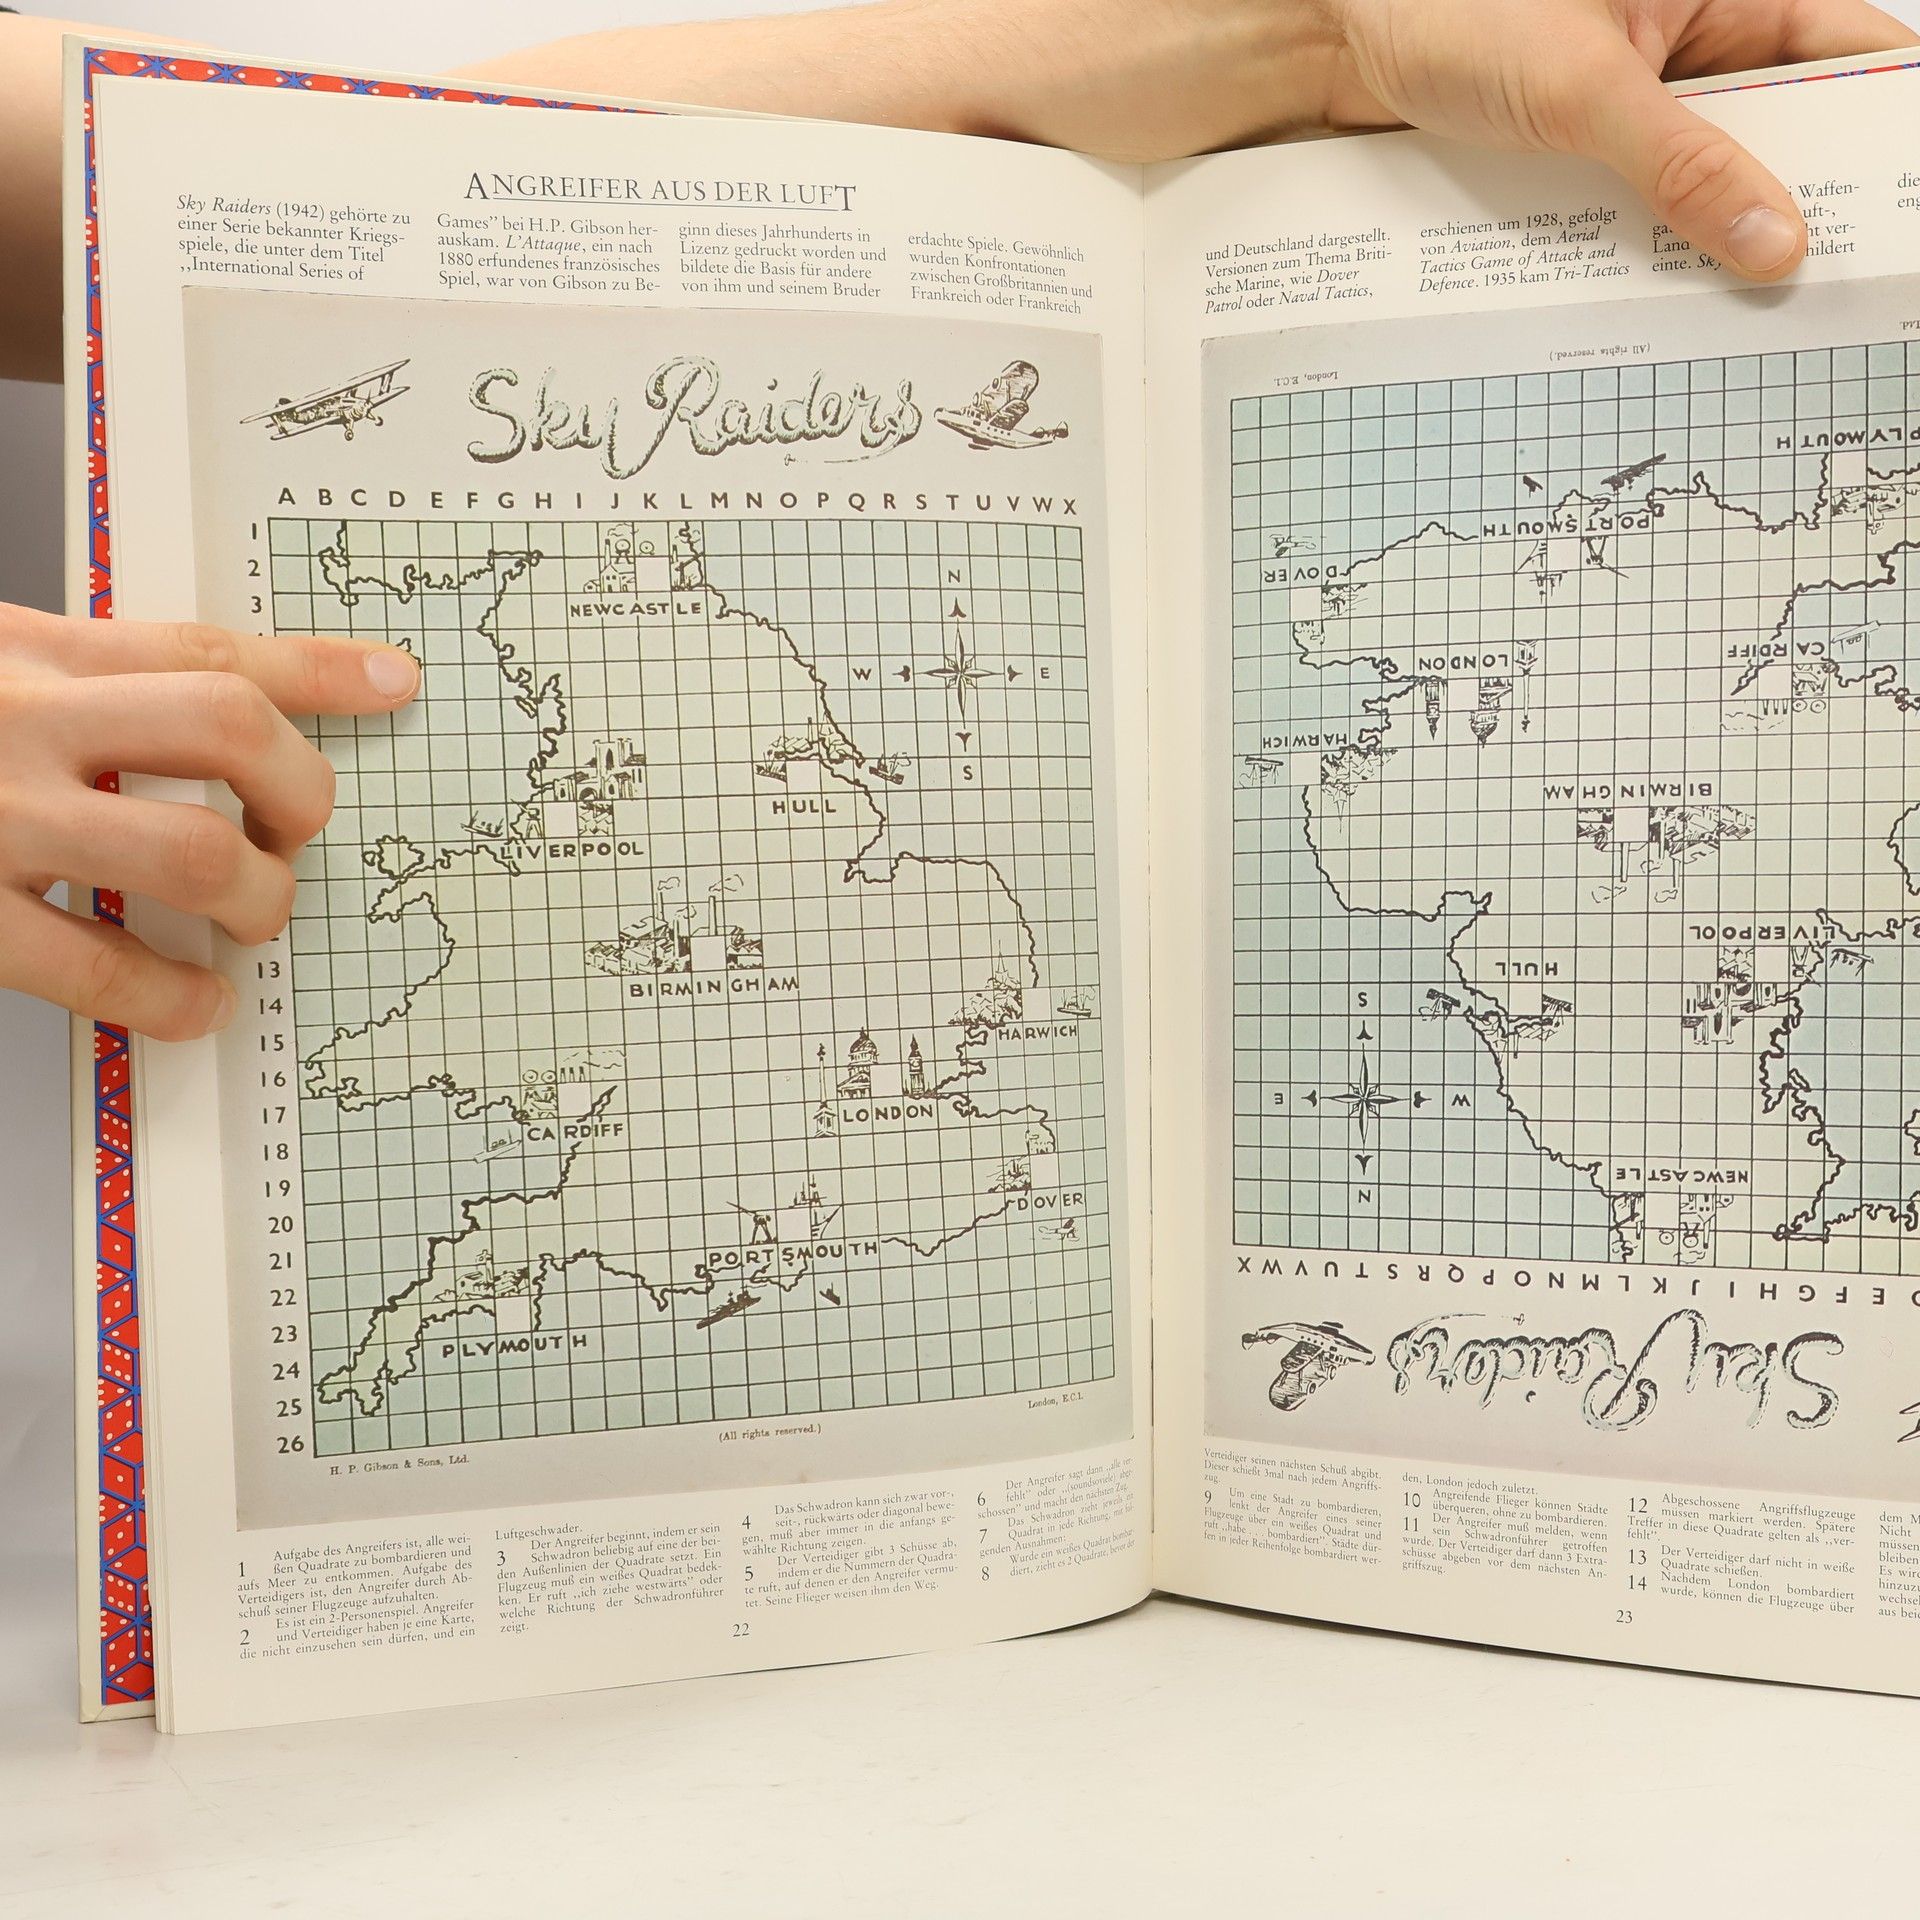 ANGREIFER AUS DER LUFT
Sky Raiders (1942) gehörte zu
einer Serie bekannter Kriegs-
spiele, die unter dem Titel
,,International Series of
Games" bei H.P. Gibson her-
auskam. L'Attaque, ein nach
1880 erfundenes französisches
Spiel, war von Gibson zu Be-
ginn dieses Jahrhunderts in
Lizenz gedruckt worden und
bildete die Basis für andere
von ihm und seinem Bruder
erdachte Spiele. Gewöhnlich
wurden Konfrontationen
zwischen Großbritannien und
Frankreich oder Frankreich
Sky Raiders
A B C D E F G H I J K L M N O P Q R S T U V W X
1
2
3
13
14
15
16
17
18
19
20
21
22
23
24
25
26
N
W E
S
NEWCASTLE
HULL
LIVERPOOL
BIRMINGHAM
HARWICH
LONDON
CARDIFF
DOVER
PORTSMOUTH
PLYMOUTH
H. P. Gibson & Sons, Ltd.
(All rights reserved.)
London, E.C.1.
1 Aufgabe des Angreifers ist, alle wei-
ßen Quadrate zu bombardieren und
aufs Meer zu entkommen. Aufgabe des
Verteidigers ist, den Angreifer durch Ab-
schuß seiner Flugzeuge aufzuhalten.
2 Es ist ein 2-Personenspiel. Angreifer
und Verteidiger haben je eine Karte,
die nicht einzusehen sein dürfen, und ein
Luftgeschwader.
3 Der Angreifer beginnt, indem er sein
Schwadron beliebig auf eine der bei-
den Außenlinien der Quadrate setzt. Ein
Flugzeug muß ein weißes Quadrat bedek-
ken. Er ruft ,,ich ziehe westwärts" oder
welche Richtung der Schwadronführer
zeigt.
4 Das Schwadron kann sich zwar vor-,
seit-, rückwärts oder diagonal bewe-
gen, muß aber immer in die anfangs ge-
wählte Richtung zeigen.
5 Der Verteidiger gibt 3 Schüsse ab,
indem er die Nummern der Quadra-
te ruft, auf denen er den Angreifer vermu-
tet. Seine Flieger weisen ihm den Weg.
6 Der Angreifer sagt dann ,,alle ver-
fehlt" oder ,,(soundsoviele) abge-
schossen" und macht den nächsten Zug.
7 Das Schwadron zieht jeweils ein
Quadrat in jede Richtung, mit fol-
genden Ausnahmen:
8 Wurde ein weißes Quadrat bombar-
diert, zieht es 2 Quadrate, bevor der
22
und Deutschland dargestellt.
Versionen zum Thema Briti-
sche Marine, wie Dover
Patrol oder Naval Tactics,
erschienen um 1928, gefolgt
von Aviation, dem Aerial
Tactics Game of Attack and
Defence. 1935 kam Tri-Tactics
Waffen-
uft-,
Land ver-
einte. Sky hildert
die
eng
London, E.C.1.
(All rights reserved.)
Ltd.
PLYMOUTH
PORTSMOUTH
DOVER
CARDIFF
LONDON
HARWICH
BIRMINGHAM
LIVERPOOL
HULL
S
E W
N
NEWCASTLE
X W V U T S R Q P O N M L K J I H G F E
Sky Raiders
Verteidiger seinen nächsten Schuß abgibt.
Dieser schießt 3mal nach jedem Angriffs-
zug.
9 Um eine Stadt zu bombardieren,
lenkt der Angreifer eines seiner
Flugzeuge über ein weißes Quadrat und
ruft ,,habe . . . bombardiert". Städte dür-
fen in jeder Reihenfolge bombardiert wer-
den, London jedoch zuletzt.
10 Angreifende Flieger können Städte
überqueren, ohne zu bombardieren.
11 Der Angreifer muß melden, wenn
sein Schwadronführer getroffen
wurde. Der Verteidiger darf dann 3 Extra-
schüsse abgeben vor dem nächsten An-
griffszug.
12 Abgeschossene Angriffsflugzeuge
müssen markiert werden. Spätere
Treffer in diese Quadrate gelten als ,,ver-
fehlt".
13 Der Verteidiger darf nicht in weiße
Quadrate schießen.
14 Nachdem London bombardiert
wurde, können die Flugzeuge über
dem M
Nicht
müssen
bleiben
Es wird
hinzuzu
wechsel
aus beid
23